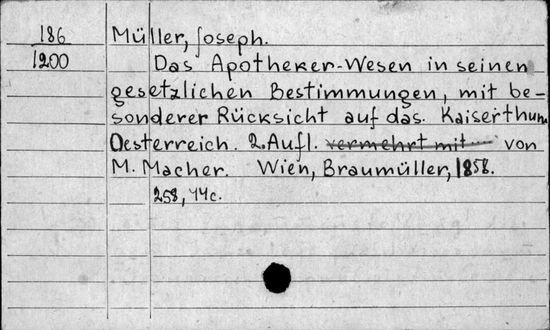 186
1200
Müller, Joseph.
Das Apotheker-Wesen in seinen
gesetzlichen Bestimmungen, mit be-
sonderer Rücksicht auf das Kaiserthum
Oesterreich. 2. Aufl. vermehrt mit von
M. Macher. Wien, Braumüller, 1858.
258, 44c.